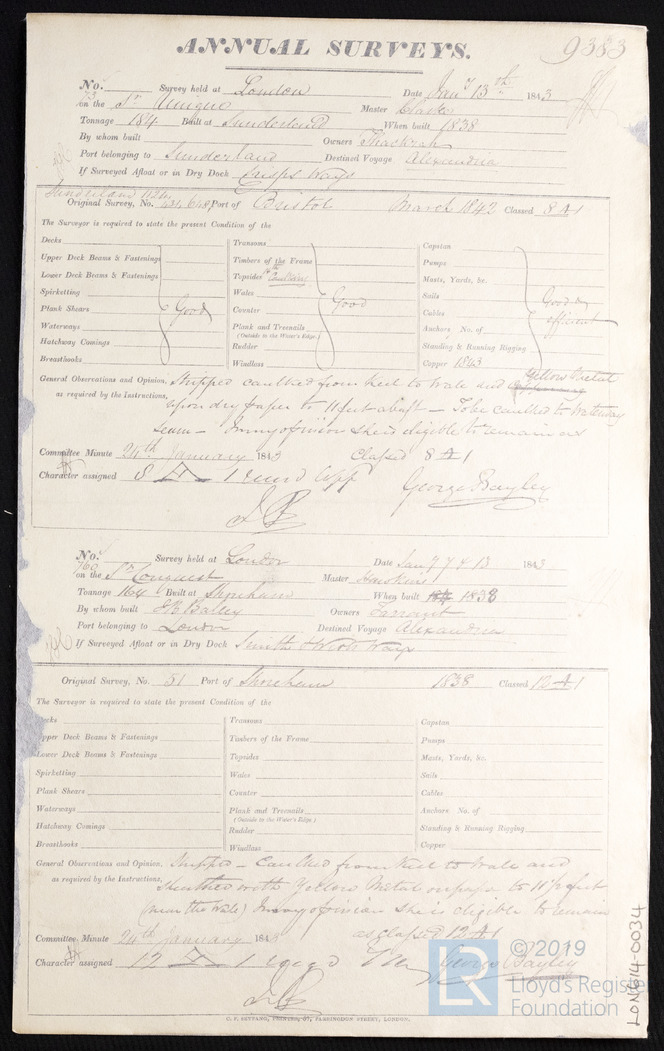 ANNUAL SURVEYS. 9383
No. 73 Survey held at London Date Jany 13th 1843
on the Sr Unique Master Clarke
Tonnage 184 Built at Sunderland When built 1838
By whom built Owners Thackrah
Port belonging to Sunderland Destined Voyage Alexandria
If Surveyed Afloat or in Dry Dock Crisps Ways
Sunderland
Original Survey, No. Port of Bristol March 1842 Classed 8 A 1
The Surveyor is required to state the present Condition of the
Decks Transoms Capstan
Upper Deck Beams & Fastenings Timbers of the Frame Pumps
Lower Deck Beams & Fastenings Topsides Masts, Yards, &c.
Spirketting Wales Sails Good &
Plank Shears Good Counter Good Cables efficient
Waterways Plank and Treenails Anchors. No. of
(Outside to the Water's Edge.)
Hatchway Comings Rudder Standing & Running Rigging
Breasthooks Windlass Copper 1843
General Observations and Opinion, Stripped caulked from Keel to Wale and Yellow Metal
as required by the Instructions, upon dry paper to 11 feet abaft – To be caulked to Waterway
Seam – In my opinion she is eligible to remain as
Committee Minute 24th January 1843 Classed 8 A 1
Character assigned 8 A 1 George Bayley
No. 760 Survey held at London Date Jany 7 & 13 1843
on the Sr Conquest Master Hoskins
Tonnage 164 Built at Shoreham When built 1838
By whom built J B Balley Owners Tarrant
Port belonging to London Destined Voyage Alexandria
If Surveyed Afloat or in Dry Dock Smith Ways
Original Survey, No. 51 Port of Shoreham 1838 Classed 12 A 1
The Surveyor is required to state the present Condition of the
Decks Transoms Capstan
Upper Deck Beams & Fastenings Timbers of the Frame Pumps
Lower Deck Beams & Fastenings Topsides Masts, Yards, &c.
Spirketting Wales Sails
Plank Shears Counter Cables
Waterways Plank and Treenails Anchors. No. of
(Outside to the Water's Edge.)
Hatchway Comings Rudder Standing & Running Rigging
Breasthooks Windlass Copper
General Observations and Opinion, Stripped – Caulked from Keel to Wale and
as required by the Instructions, Sheathed with Yellow Metal on paper to 11 1/2 feet
(near the Wale) In my opinion she is eligible to remain
Committee Minute 24th January 1843 as classed 12 A 1
Character assigned 12 A 1 George Bayley
C. F. SEYFANG, PRINTER, 57, FARRINGDON STREET, LONDON.
LON614-0034
LR
©2019
Lloyd's Register
Foundation